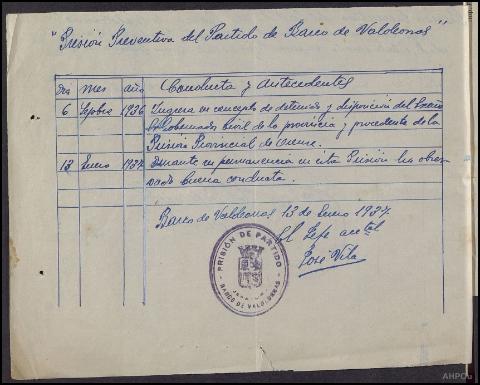 "Prisión Preventiva del Partido de Barco de Valdeorras"
Dia Mes año Conducta y Antecedentes
6 Sepbre 1936 Ingresa en concepto de detenido y disposicion del Excmo
Sr Gobernador Civil de la provincia y procedente de la
Prisión Provincial de Orense.
13 Enero 1937 Durante su permanencia en esta Prisión ha obser-
vado buena conducta.
Barco de Valdeorras 13 de Enero 1937.
El Jefe acctal
José Vila
PRISIÓN DE PARTIDO
BARCO DE VALDEORRAS
AHPOu